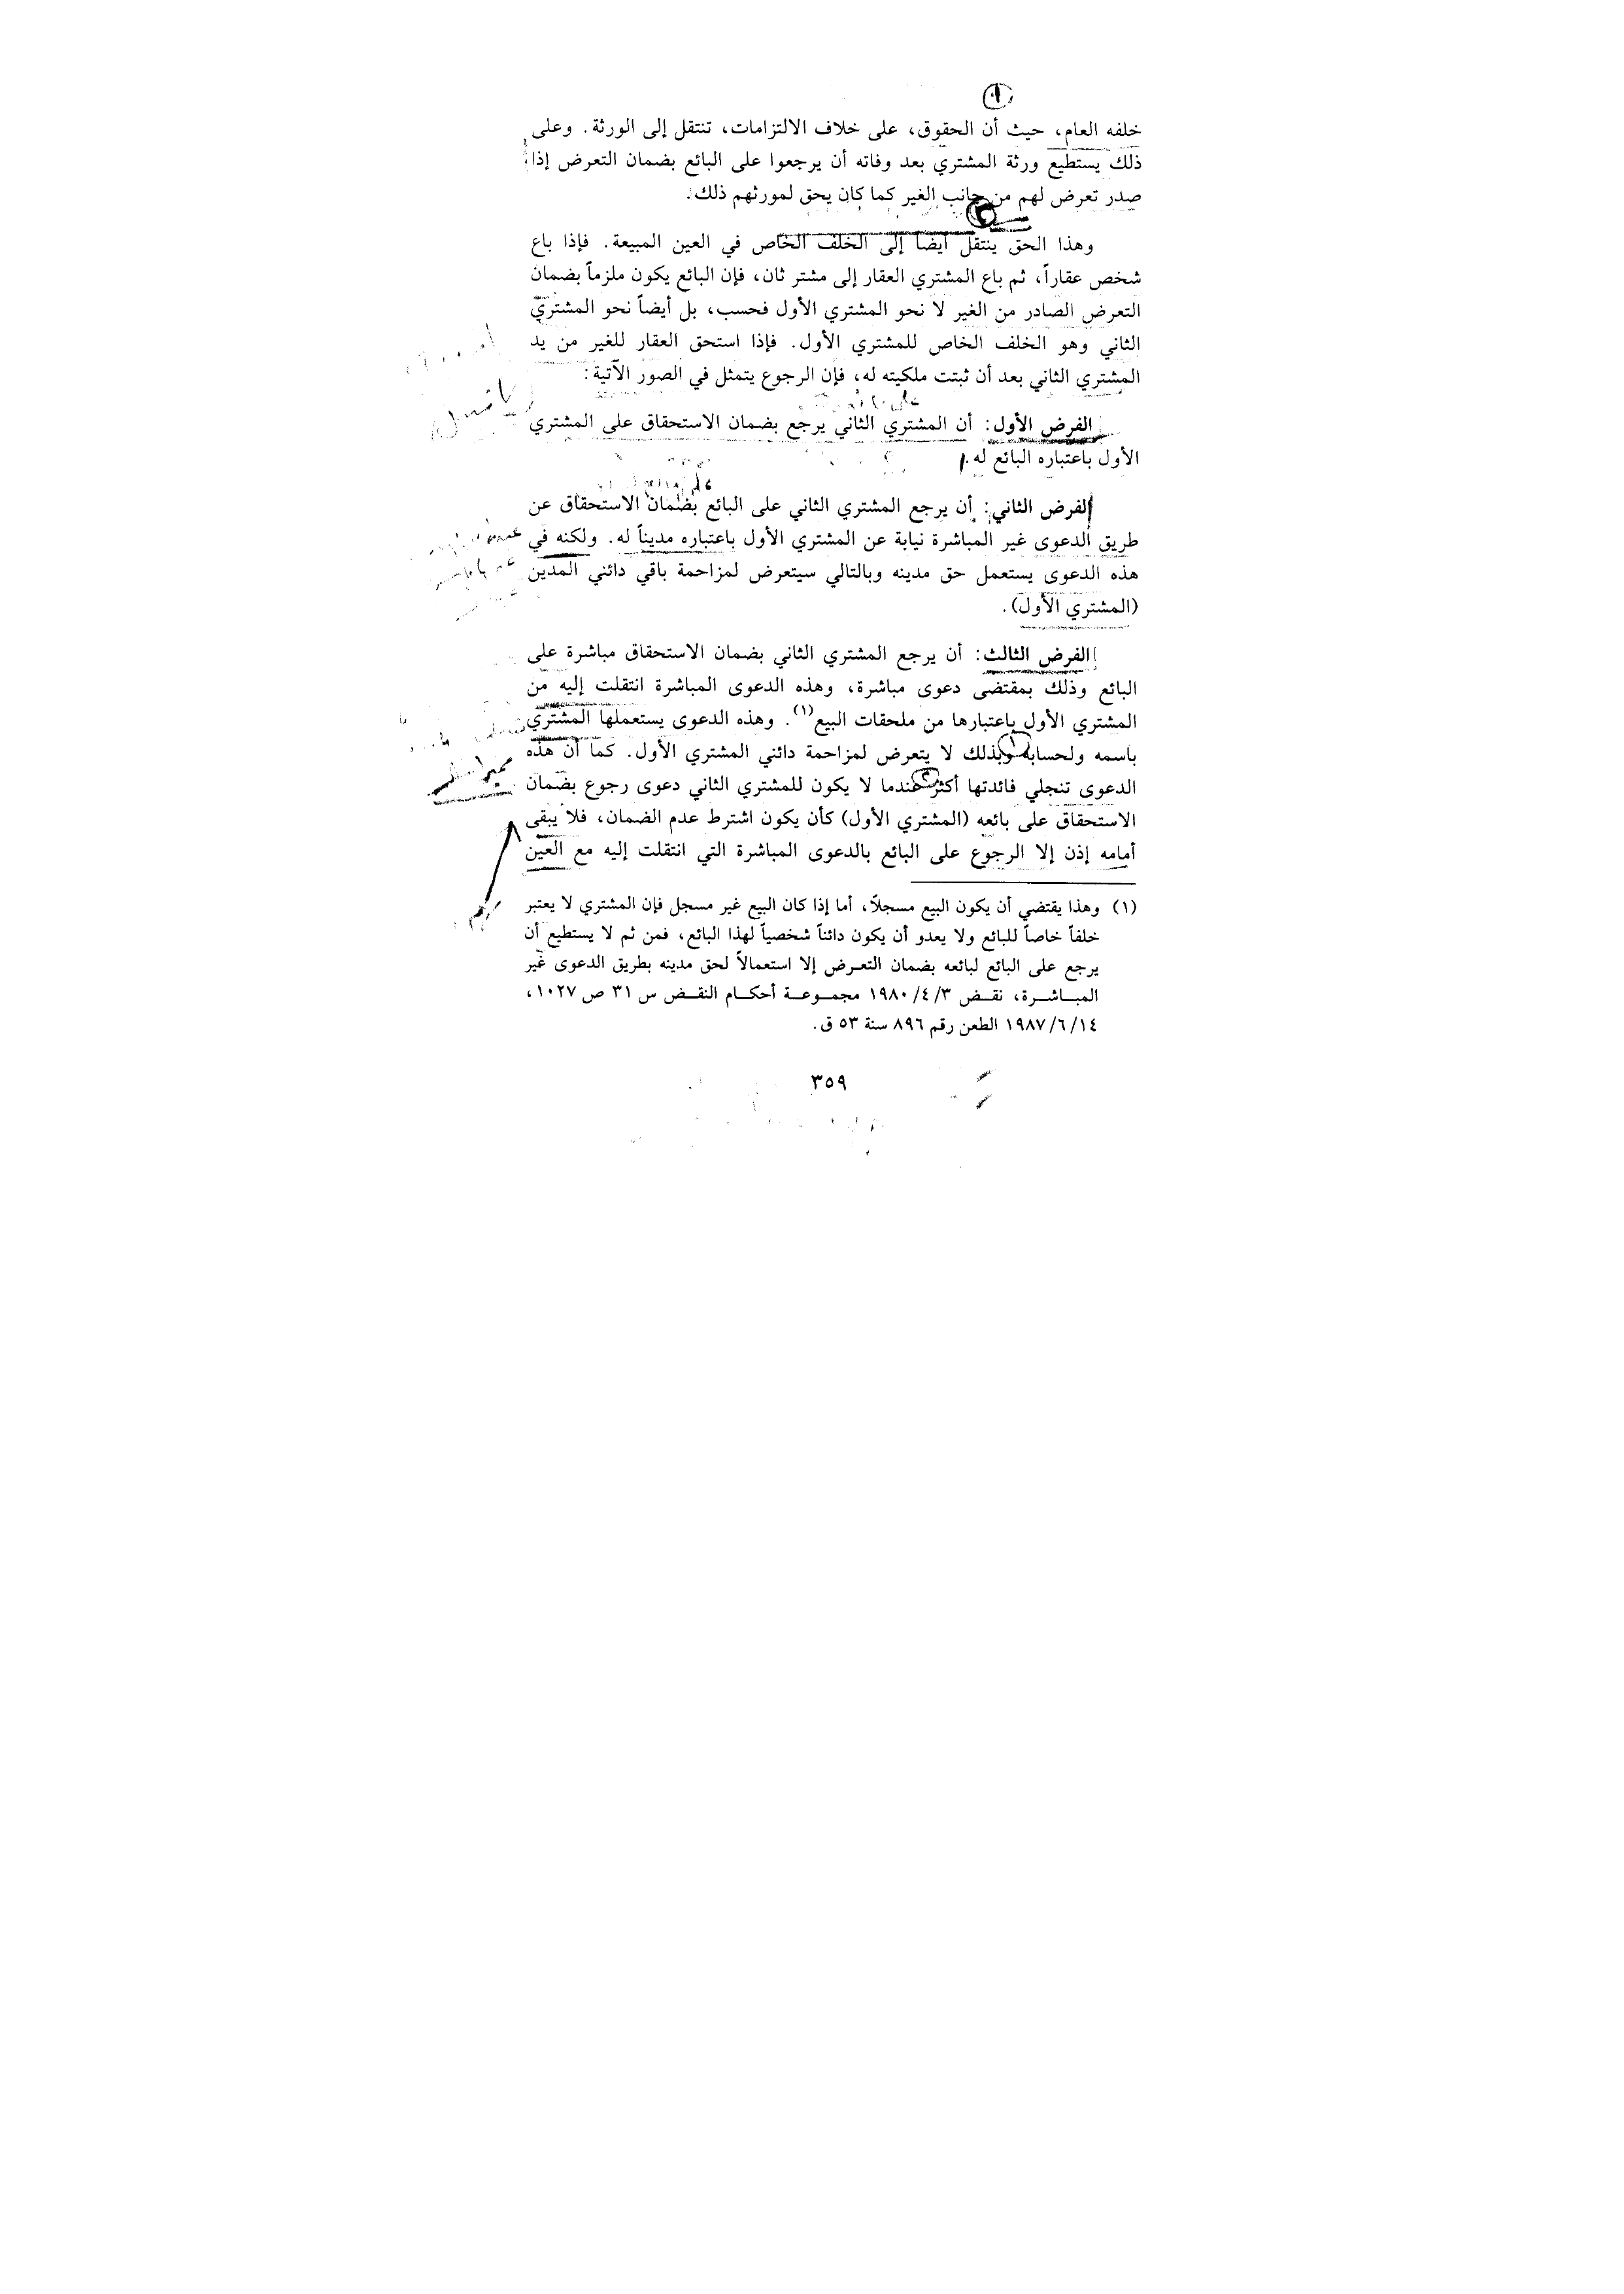 خلفه العام، حيث أن الحقوق، على خلاف الالتزامات، تنتقل إلى الورثة. وعلى
ذلك يستطيع ورثة المشتري بعد وفاته أن يرجعوا على البائع بضمان التعرض إذا
صدر تعرض لهم من جانب الغير كما كان يحق لمورثهم ذلك.
وهذا الحق ينتقل أيضاً إلى الخلف الخاص في العين المبيعة. فإذا باع
شخص عقاراً، ثم باع المشتري العقار إلى مشتر ثان، فإن البائع يكون ملزماً بضمان
التعرض الصادر من الغير لا نحو المشتري الأول فحسب، بل أيضاً نحو المشتري
الثاني وهو الخلف الخاص للمشتري الأول. فإذا استحق العقار للغير من يد
المشتري الثاني بعد أن ثبتت ملكيته له، فإن الرجوع يتمثل في الصور الآتية:
الفرض الأول: أن المشتري الثاني يرجع بضمان الاستحقاق على المشتري
الأول باعتباره البائع له.
الفرض الثاني: أن يرجع المشتري الثاني على البائع بضمان الاستحقاق عن
طريق الدعوى غير المباشرة نيابة عن المشتري الأول باعتباره مديناً له. ولكنه في
هذه الدعوى يستعمل حق مدينه وبالتالي سيتعرض لمزاحمة باقي دائني المدين
(المشتري الأول).
الفرض الثالث: أن يرجع المشتري الثاني بضمان الاستحقاق مباشرة على
البائع وذلك بمقتضى دعوى مباشرة، وهذه الدعوى المباشرة انتقلت إليه من
المشتري الأول باعتبارها من ملحقات البيع(١). وهذه الدعوى يستعملها المشتري
باسمه ولحسابه وبذلك لا يتعرض لمزاحمة دائني المشتري الأول. كما أن هذه
الدعوى تنجلي فائدتها أكثر عندما لا يكون للمشتري الثاني دعوى رجوع بضمان
الاستحقاق على بائعه (المشتري الأول) كأن يكون اشترط عدم الضمان، فلا يبقى
أمامه إذن إلا الرجوع على البائع بالدعوى المباشرة التي انتقلت إليه مع العين
(١) وهذا يقتضي أن يكون البيع مسجلاً، أما إذا كان البيع غير مسجل فإن المشتري لا يعتبر
خلفاً خاصاً للبائع ولا يعدو أن يكون دائناً شخصياً لهذا البائع، فمن ثم لا يستطيع أن
يرجع على البائع لبائعه بضمان التعرض إلا استعمالاً لحق مدينه بطريق الدعوى غير
المباشرة، نقض ٣/٤/١٩٨٠ مجموعة أحكام النقض س ٣١ ص ١٠٢٧،
١٤/٦/١٩٨٧ الطعن رقم ٨٩٦ سنة ٥٣ ق.
٣٥٩